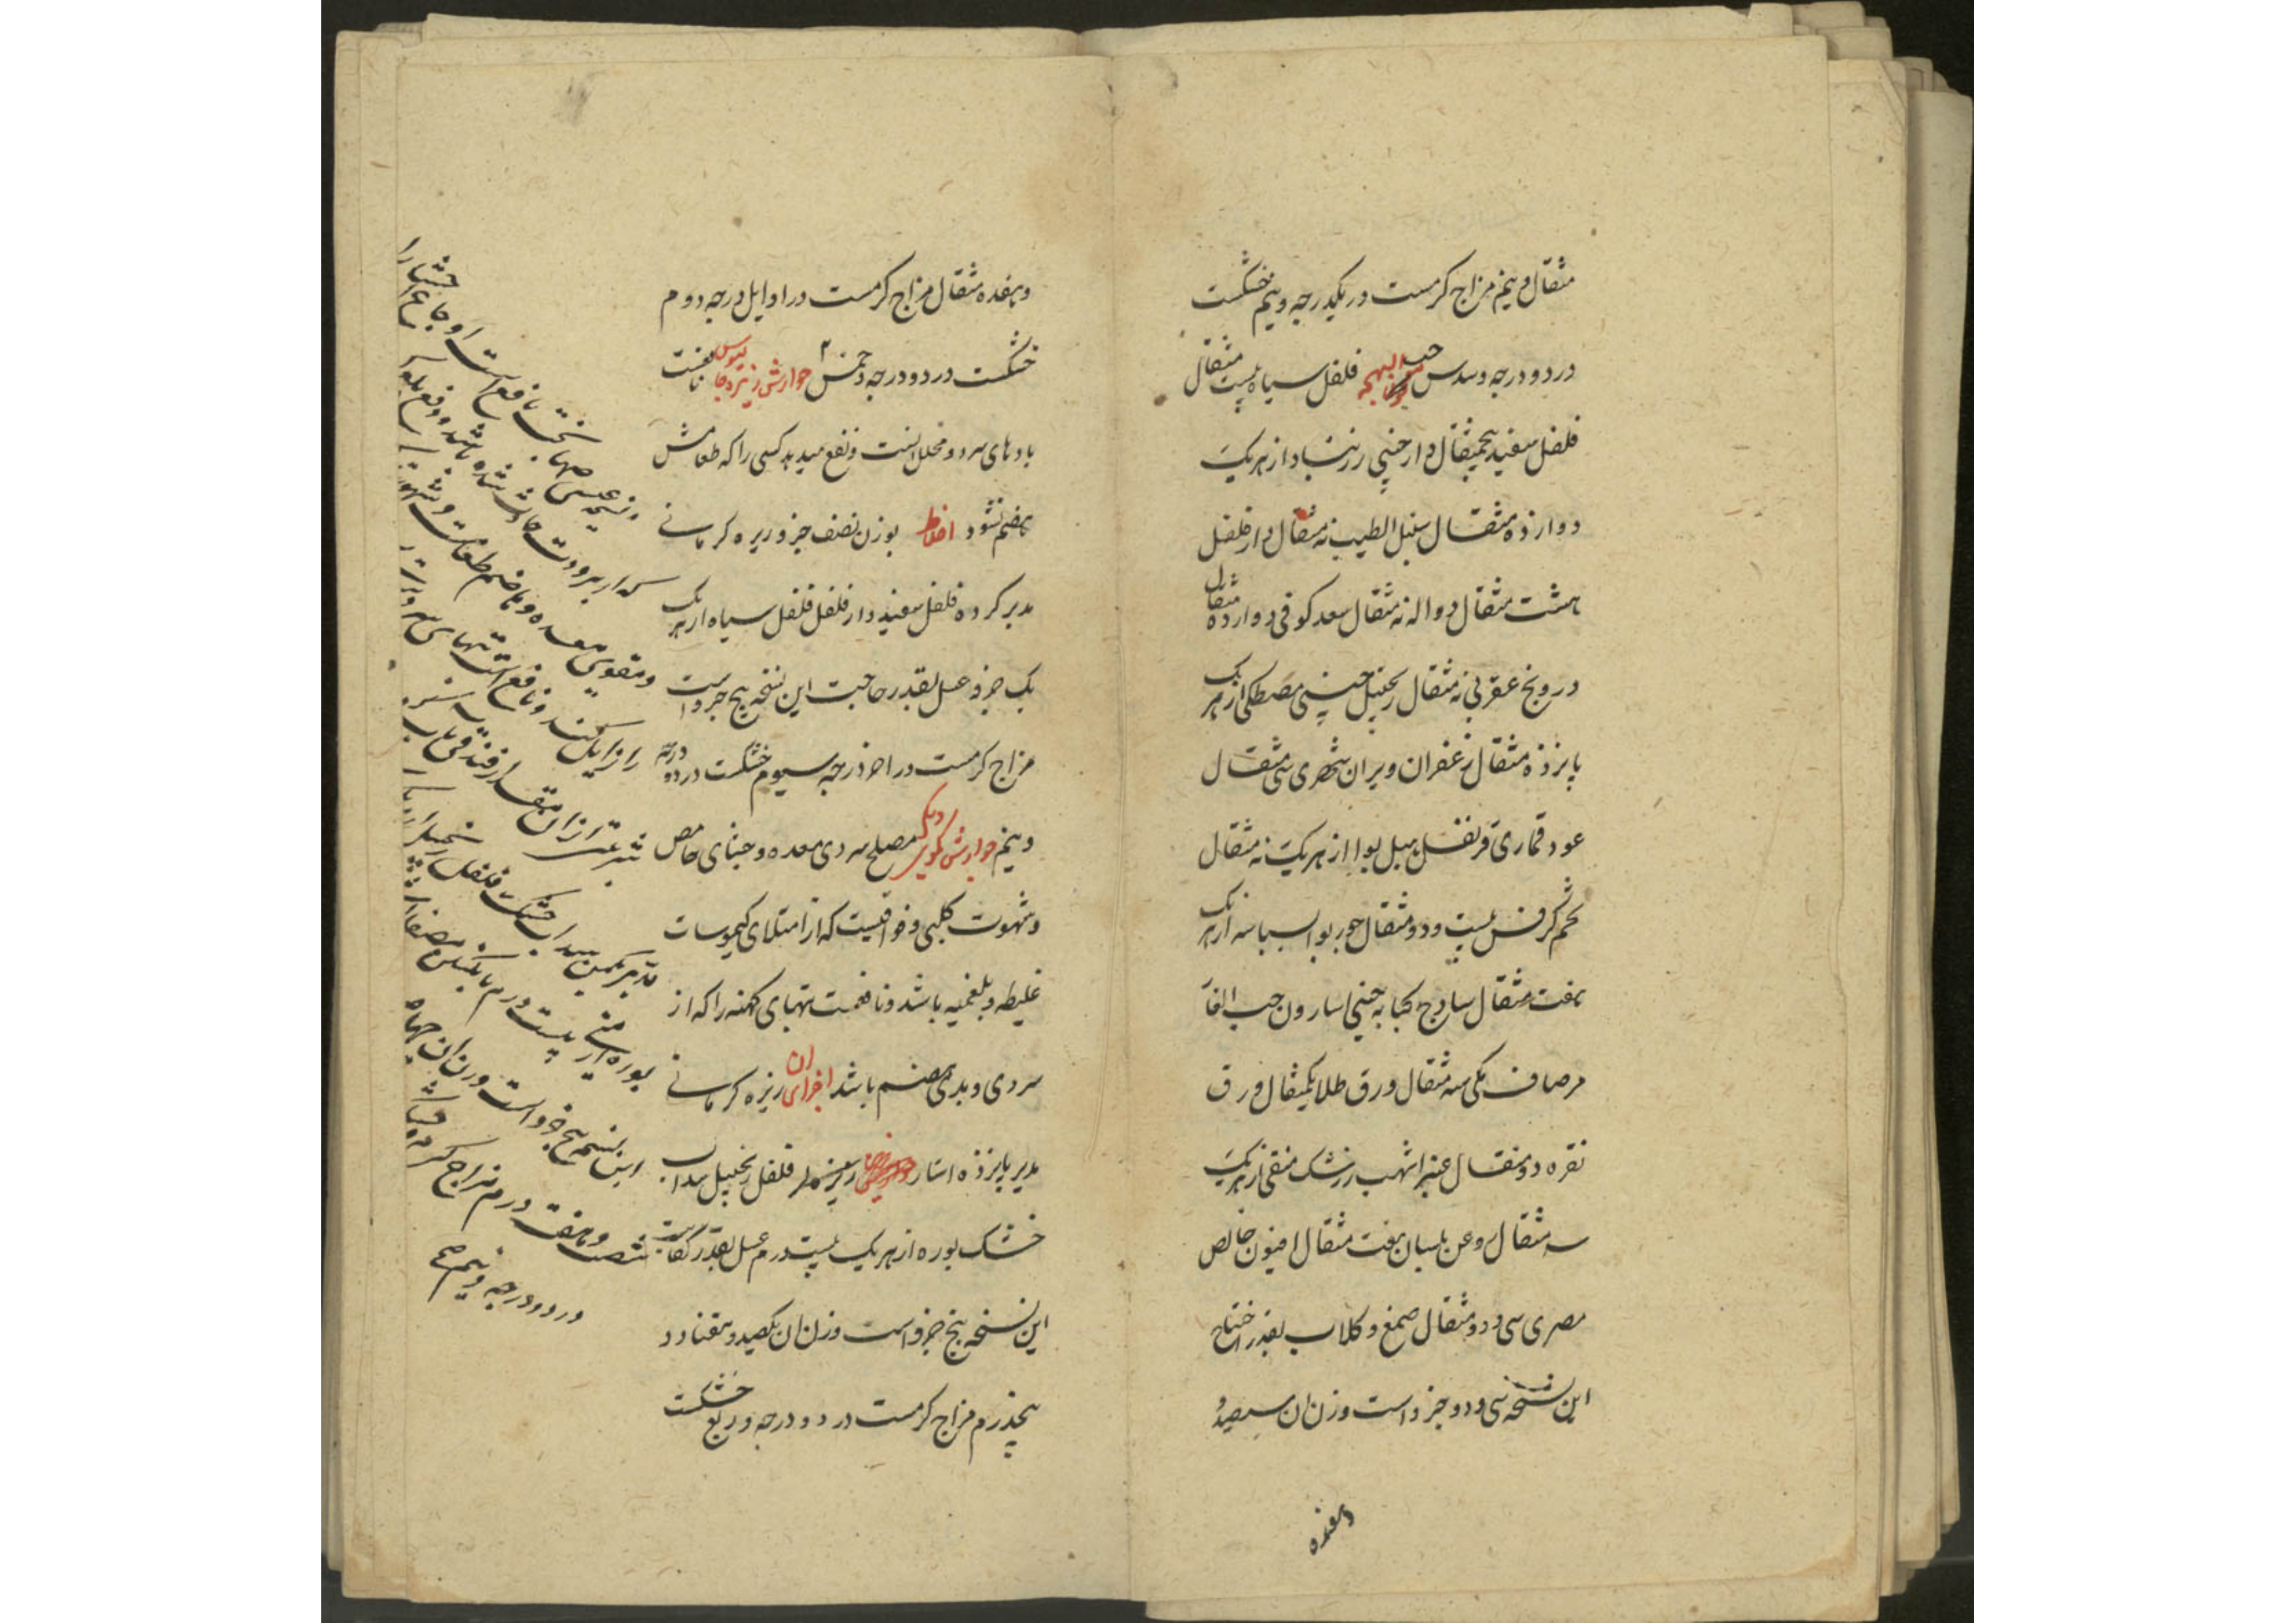 مثقال و نیم مزاج کرمست در یکدرجه و نیم خشکست
در دو درجه و سدس حب البهجه فلفل سیاه بیست مثقال
فلفل سفید پنجمثقال دارچینی زرنباد از هریک
دوازده مثقال سنبل الطیب نه مثقال دارفلفل
هشت مثقال دواله نه مثقال سعد کوفی دوازده مثقال
درونج عقربی نه مثقال زنجبیل چینی مصطکی از هریک
پانزده مثقال زعفران ویران شهری سی مثقال
عود قماری قرنفل هیل بوا از هریک نه مثقال
تخم کرفس بیست و دو مثقال جوز بوا بسباسه از هریک
هفت مثقال سادج کبابه چینی اسارون حب الغار
مرصاف مکی سه مثقال ورق طلا یکمثقال ورق
نقره دو مثقال عنبر اشهب زرشک منقی از هریک
سه مثقال روغن بلسان هفت مثقال افیون خالص
مصری سی و دو مثقال صمغ و کلاب بقدر احتیاج
این نسخه سی و دو جزو است وزن ان سیصد و
وهفده
وهفده مثقال مزاج کرمست در اوایل درجه دوم
خشکست در دو درجه و خمس جوارش زیره جالینوس
بادهای سرد و محلل است و نفع میدهد کسی را که طعامش
هضم نشود اخلاط بوزن نصف جزو زیره کرمانی
مدبر کرده فلفل سفید دارفلفل فلفل سیاه از هریک
یک جزو عسل بقدر حاجت این نسخه پنج جزو است
مزاج کرمست در اخر درجه سیوم خشکست در دو درجه
و نیم جوارش کمونی دیگر مصلح سردی معده و جشای حامض
و شهوت کلبی و فواقیست که از امتلای کیموسات
غلیظه و بلغمیه باشد و نافعست تبهای کهنه را که از
سردی و بدی هضم باشد اجزای ان زیره کرمانی
مدبر پانزده استار فلفل زنجبیل سداب
خشک بوره از هریک بیست درم عسل بقدر کفایت
این نسخه پنج جزو است وزن ان یکصد و هفتاد و
پنجدرم مزاج کرمست در دو درجه و ربع خشکست
نسخه عیسی صهاربخت نافع است اوجاع احشا را
که از برودت حادث شده باشد و دفع بلغم
و مقوی معده و هاضم طعامست و شهوت
را زایل کند و نافع است تبهای سرد
شربتی از ان مقدار فندقی باب سرد
مدبر سداب خشک فلفل زنجبیل
بوره ارمنی بیست درم
این نسخه پنج جزو است وزن ان چهار
شصت و هفت درم مزاج کرم
در دو درجه و نیم صح